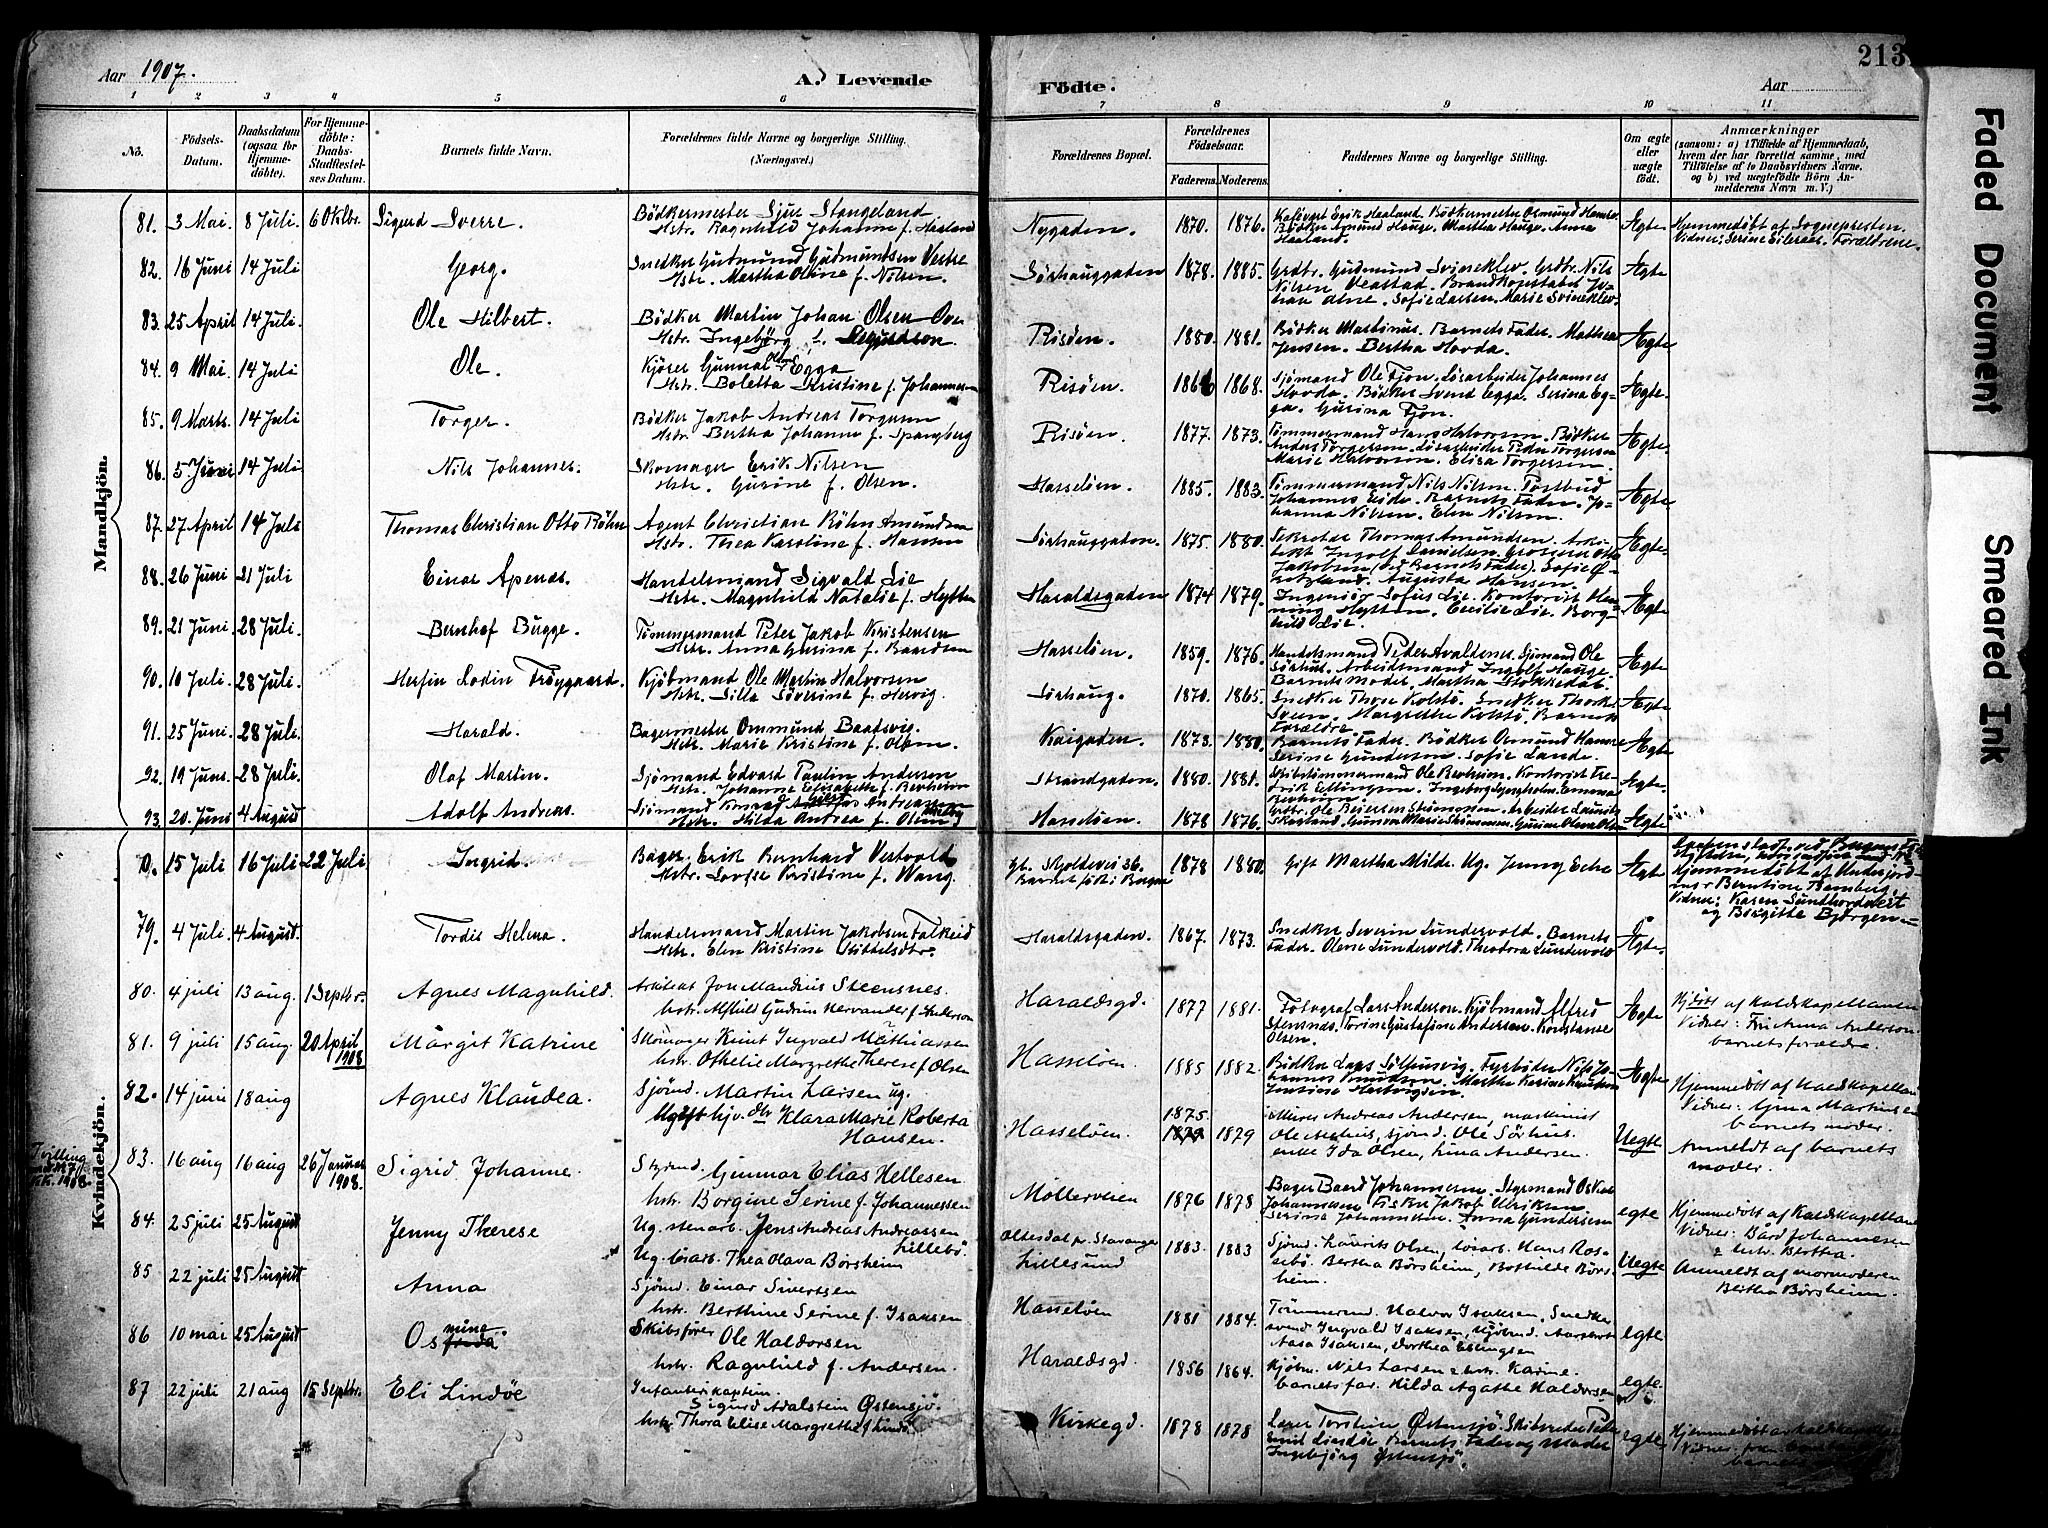 Aar 1907.
A. Levende
Födte.
Aar
213.
1 2 3 4 5 6 7 8 9 10 11
No.
Födsels-
Datum.
Daabsdatum
(ogsaa for
Hjemme-
döbte).
For Hjemme-
döbte:
Daabs-
Stadfæstel-
ses Datum.
Barnets fulde Navn.
Forældrenes fulde Navne og borgerlige Stilling.
(Næringsvei.)
Forældrenes Bopæl.
Forældrenes
Födselsaar.
Faderens. Moderens.
Faddernes Navne og borgerlige Stilling.
Om ægte
eller
uægte
født.
Anmærkninger
(saasom: a) i Tilfælde af Hjemmedaab,
hvem der har forrettet samme, med
Tilføielse af to Daabsvidners Navne,
og b) ved uægtefödte Börn An-
melderens Navn m. V.)
Mandkjön.
81. 3 Mai 8 Juli. 6 Oktbr. Sigurd Sverre. Bödkermester Sjur Stangeland
Hstr. Ragnhild Johanne f. Haaland
Nygaden. 1870. 1876. Ægte Hjemmedøbt af Sognepresten.
82. 16 Juni 14 Juli Georg. Snedker Gudmund Gudmundsen Vestre
Hstr. Martha Oline f. Nilsen.
Sörhauggaden 1878. 1885. Grdbr. Gudmund Svineklev. Grdbr. Nils
Ægte
83. 25 April 14 Juli. Ole Hilbert. Bödker Martin Johan Olsen
Hstr. Ingebjörg f.
Risöen. 1880. 1881. Bödker Martinus. Barnets Fader. Mathea
Jensen. Bertha Hovda. Ægte
84. 9 Mai. 14 Juli Ole. Kjörer Gunnar Olsen Egga
Hstr. Boletta Kristine f. Johannesen
Risöen. 1868. Sjömand Ole Fjon. Lösarbeider Johannes
Hovda. Bödker Svend Egga. Serina Eg-
ga. Gurina Fjon. Ægte.
85. 9 Marts. 14 Juli Torger. Bödker Jakob Andreas Torgersen
Hstr. Bertha Johanne f. Spangberg
Risöen. 1877. 1873. Tömmermand Hans Halvorsen. Bödker
Anders Torgersen. Lösarbeider Peder Torgersen
Marie Halvorsen. Elisa Torgersen. Ægte.
86. 5 Juni 14 Juli Nils Johannes. Skomager Erik Nilsen
Hstr. Gurine f. Olsen.
Hasselöen. 1885. 1883. Tömmermand Nils Nilsen. Postbud
Johannes Eide. Barnets Fader. Jo-
hanna Nilsen. Elen Nilsen. Ægte
87. 27 April 14 Juli Thomas Christian Otto Röhn Agent Christian Röhn Amundsen
Hstr. Thea Karoline f. Hansen
Sörhauggaden. 1875. 1880. Sekretær Thomas Amundsen. Arki-
tekt Ingolf Danielsen. Grosserer Otto
Jakobsen (ved Barnets Fader). Sofie
Augusta Hansen. Ægte
88. 26 Juni 21 Juli Einar Apenæs. Handelsmand Sigvald Lie
Hstr. Magnhild Natalie f. Hytten
Haraldsgaden 1874 1879. Ingeniör Sofus Lie. Kontorist Hen-
ning Hytten. Cecilie Lie. Borg-
hild Lie. Ægte
89. 21 Juni. 28 Juli. Bernhof Bugge. Tömmermand Peter Jakob Kristensen
Hstr. Anna Gurina f. Baardsen
Hasselöen. 1859. 1876. Handelsmand Peder Avaldsnes. Sjömand Ole
Sörhus. Arbeidsmand Ingolf Hauge.
Barnets Moder. Martha Stokkedal. Ægte
90. 10 Juli. 28 Juli. Herfin Lodin Fröygaard. Kjöbmand Ole Martin Halvorsen
Hstr. Silla Söverine f. Hervig.
Sörhaug. 1870. 1865. Snedker Thore Kolstö. Snedker Thorkel
Sveen. Margrethe Kolstö. Barnets
Forældre. Ægte
91. 25 Juni. 28 Juli. Harald. Bagermester Ommund Baatsvig.
Hstr. Marie Kristine f. Olsen.
Kaigaden. 1873. 1880. Barnets Fader. Bödker Osmund Hamre
Serine Gundersen. Sofie Lande. Ægte
92. 19 Juni. 28 Juli. Olaf Martin. Sjömand Edvard Paulin Andersen
Hstr. Johanne Elisabeth f. Berheim
Strandgaden. 1880. 1881. Skibstömmermand Ole Berheim. Kontorist Fre-
drik Ellingsen. Ægte
93. 20 Juni 4 August Adolf Andreas. Sjömand Konrad
Hstr. Hilda Andrea f. Olsen
Hasselöen. 1878 1876. Ægte
Kvindekjön.
15 Juli 16 Juli 22 Juli Ingrid. Bager Erik Bernhard Vestvold
Hstr. Lovise Kristine f. Wang.
Skoldevei 36.
Barnet født i Bergen 1878 1880. Gift Martha Milde. Ug. Jenny Eike Ægte
Hjemmedøbt af Underjord-
moder Berntine Bamberg,
Vidner: Karen Sundhordvest
og Birgitte Bjørgen
79. 4 Juli 4 August. Tordis Helena. Handelsmand Martin Jakobsen Falkeid
Hstr. Elen Kristine Kittelsdtr.
Haraldsgaden. 1867. 1873. Snedker Severin Lundervold. Barnets
Fader. Olene Lundervold. Theodora Lundervold Ægte.
80. 4 juli 13 aug. 1 Septbr. Agnes Magnhild. Arkitekt Jon Mandius Steensnes.
hstr. Alfhild Gudrun Hervander f. Anderson
Haraldsgd. 1877 1881. Fotograf Lars Anderson. Kjöbmand Alfred
Stensnæs. Torine Gustafine Andersen. Konstanse
Olsen. Ægte Hj.døbt af kaldskapellanen
Vidner: Fru Anna Anderson.
barnets forældre.
81. 9 juli 15 aug. 20 April 1908 Margit Katrine Skomager Knut Ingvald Mathiassen
hstr. Othelie Margrethe Therese f. Olsen
Hasselöen. 1885 1882. Ægte Hjemmedøbt af Kaldskapellan
Vidner: Gina Martinsen
barnets moder.
82. 14 juni 18 aug Agnes Klaudea. Sjömd. Martin Larsen ug.
Ugift hjv. dtr Klara Marie Roberta
Hansen.
Hasselöen. 1875. 1879 1879 Andreas Andersen, maskinist
Ole Aarhus, sjömd. Ole Sörhus.
enke Ida Olsen, Lina Andersen. Uegte Anmeldt af barnets
moder.
Tvilling
1908.
83. 16 aug 16 aug 26 Januar 1908. Sigrid Johanne. Styrmd. Gunnar Elias Hellesen
hstr. Borgine Serine f. Johannessen
Möllerveien 1876 1878 Bager Baard Johannesen. Styrmand Oskar
Johannesen. Fisker Jakob Ulriksen
Serina Johannesen. Anna Gundersen egte Hjemmedøbt af Kaldskapellanen
Vidner: Bård Johannesen
& hstr. Bertha.
84. 25 juli 25 August Jenny Therese Ug. stenarb. Jens Andreas Andreassen
Lillebö.
Ug. Lösarb. Thea Olava Börsheim
Oltesdal pr. Stavanger
Lillesund 1883. 1883 Sjömd. Laurits Olsen, lösarb. Hans Ros-
sebö. Bertha Börsheim, Bothilde Börs-
heim. Uegte Anmeldt af mormoderen
Bertha Börsheim.
85 22 juli 25 August Anna Sjömd. Einar Sivertsen
hstr. Berthine Serine f. Isaksen
Hasselöen 1881 1884. Tömmermd. Halvor Isaksen, Snedker
svend Ingvald Isaksen,
Aasa Isaksen, Dorthea Ellingsen egte.
86 10 mai 25 August Osmine Skibsfører Ole Haldorsen
hstr. Ragnhild f. Andersen.
Haraldsgd. 1856 1864. Kjöbm. Nils Larsen & hstr. Karine.
barnets far. Hilda Agathe Haldorsen egte.
87 22 juli 21 aug 15 Septbr. Eli Lindöe Infanterikaptein.
Sigurd Adalstein Østensjö.
hstr. Thora Elise Margrethe f. Lindö
Kirkegd. 1878 1878 Lærer Torstein Østensjö. Skibsreder Peder
Emil Lindöe Barnets Fader og Moder
Ingebjörg Østensjö. egte Hjemmedøbt af Kaldskapellanen
Faded Document
Smeared Ink